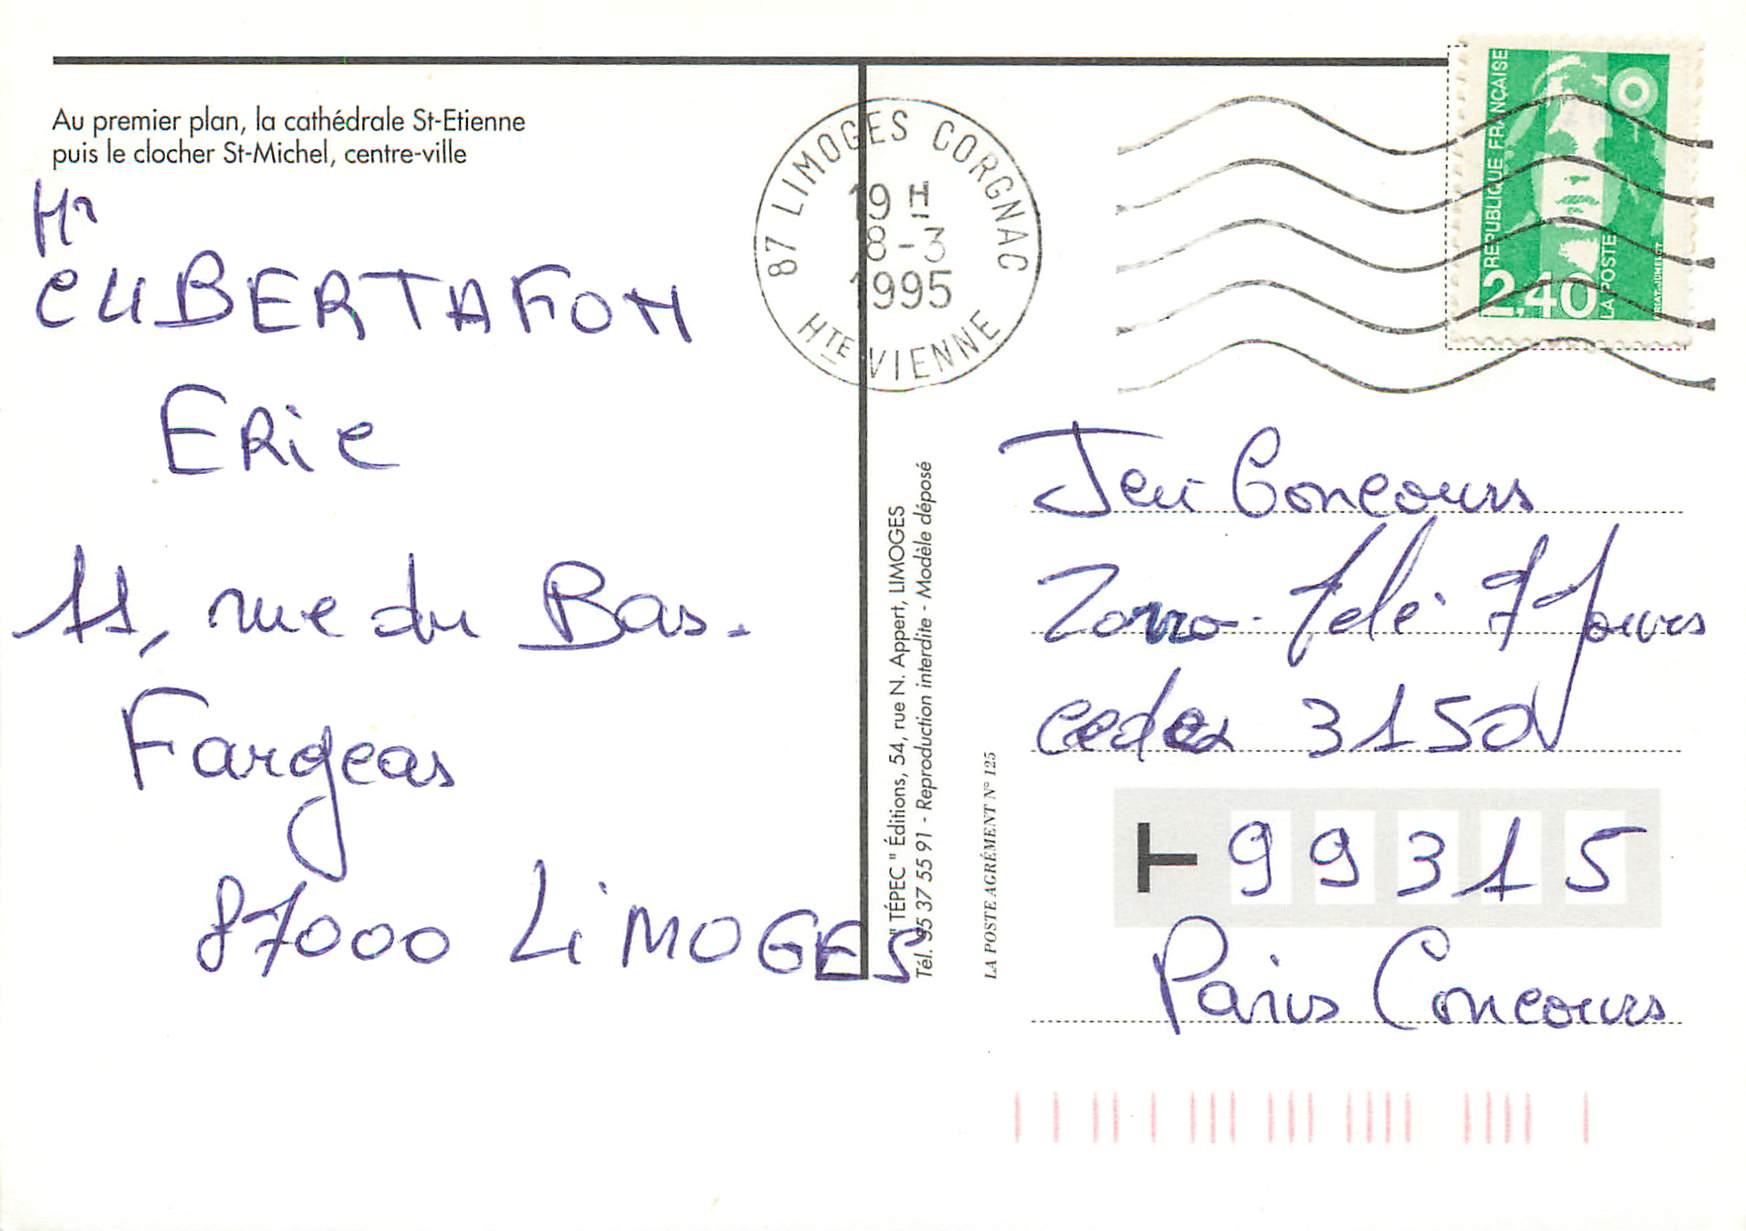 Au premier plan, la cathédrale St-Etienne
puis le clocher St-Michel, centre-ville
Mr
CUBERTAFON
ERic
11, rue du Bas.
Fargeas
87000 LiMOGES
87 LIMOGES CORGNAC
19 H
8-3
1995
HTE VIENNE
REPUBLIQUE FRANÇAISE
2,40
LA POSTE
" TÉPEC " Éditions, 54, rue N. Appert, LIMOGES
Tél. 55 37 55 91 - Reproduction interdite - Modèle déposé
LA POSTE AGRÉMENT N° 125
Jeu Concours
Zorro - Télé 7 Jours
cedex 3150
T 99315
Paris Concours